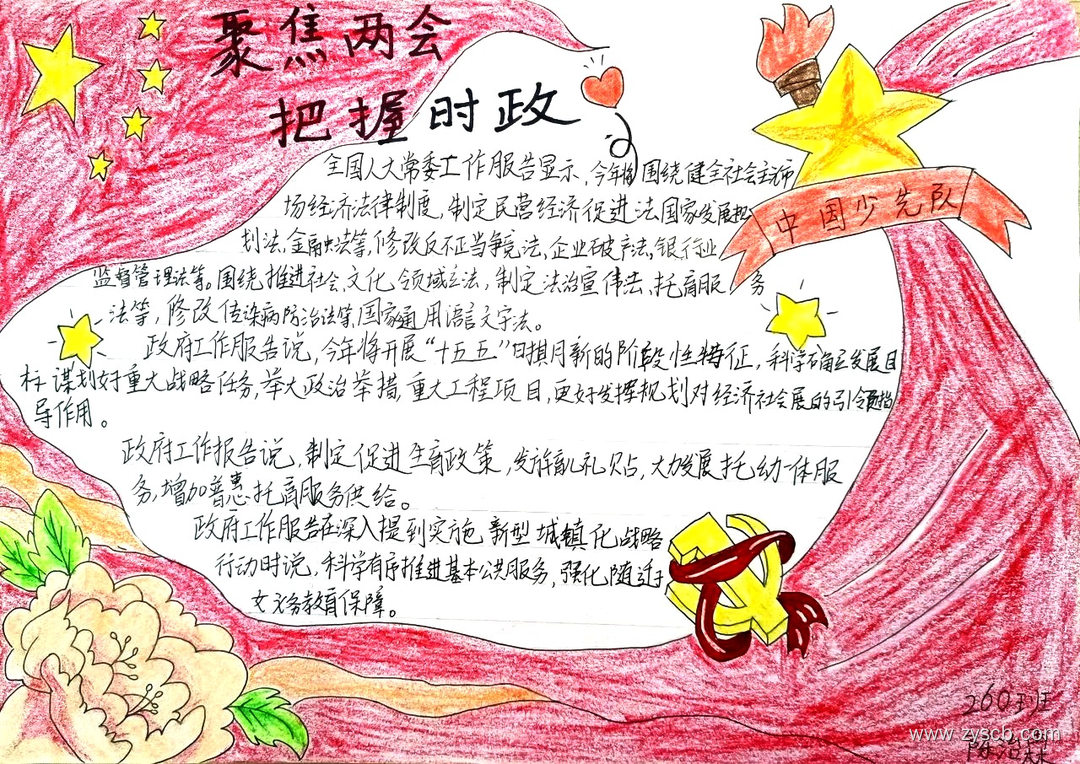 聚焦两会
把握时政
全国人大常委工作服告显示，今年将围绕健全社会主义市
场经济法律制度，制定民营经济促进法国家发展规
划法，金融法等，修改反不正当竞争法，企业破产法，银行业
监督管理法等。围绕推进社会文化领域立法，制定法治宣传法，托育服务
法等，修改传染病防治法等，国家通用语言文字法。
政府工作服告说，今年将开展“十五五”时期新的阶段性特征，科学确定发展目
标，谋划好重大战略任务，举大政治举措，重大工程项目，更好发挥规划对经济社会展的引领
导作用。
政府工作报告说，制定促进生育政策，发育儿礼贴，大力发展托幼一体服
务，增加普惠托育服务供给。
政府工作服告在深入提到实施新型城镇化战略
行动时说，科学有序推进基本公共服务，强化随迁子
女义务教育保障。
中国少先队
260班
www.zyscb.com